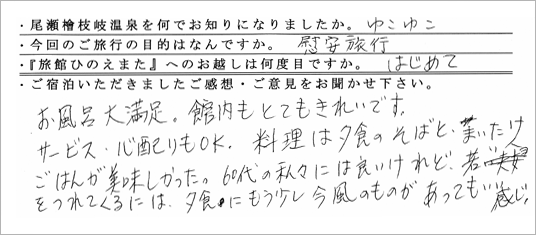 ・尾瀬檜枝岐温泉を何でお知りになりましたか。ゆこゆこ
・今回のご旅行の目的はなんですか。 慰安旅行
・『旅館ひのえまた』へのお越しは何度目ですか。 はじめて
・ご宿泊いただきましたご感想・ご意見をお聞かせ下さい。
お風呂大満足。館内もとてもきれいです。
サービス・心配りもOK. 料理は夕食のそばと、炊いた
ごはんが美味しかった。60代の私々には良いけれど、若夫婦
をつれてくるには、夕食にもう少し今風のものがあってもいい感じ。